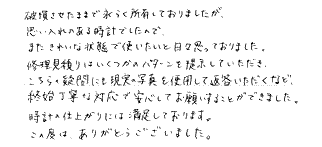 破損させたままで永らく所有しておりましたが、
思い入れのある時計でしたので、
またきれいな状態で使いたいと日々思っておりました。
修理見積りはいくつかのパターンを提示していただき、
こちらの疑問にも現実の写真を使用して返答いただくなど、
終始丁寧な対応で安心してお願いすることができました。
時計の仕上がりには満足しております。
この度は、ありがとうございました。